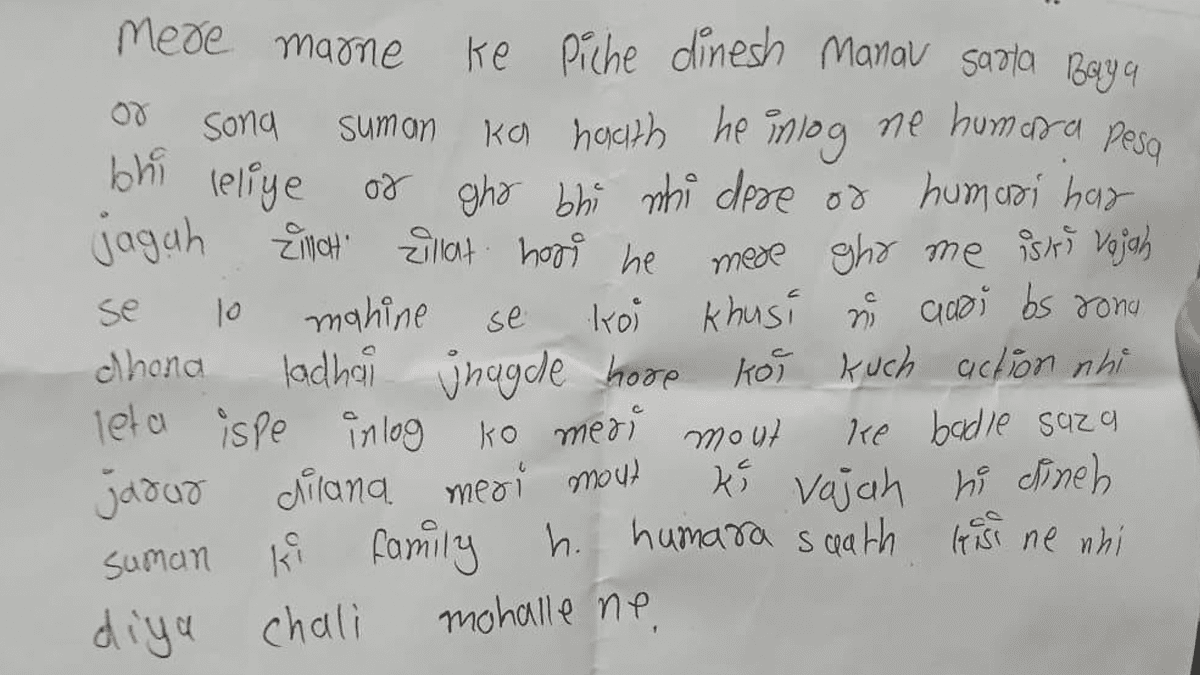 Mere marne ke Piche dinesh Manav sarla Baya
or sona suman ka haath he inlog ne humara pesa
bhi leliye or ghr bhi nhi dere or humari har
jagah zillat zillat hori he mere ghr me iski vajah
se 10 mahine se koi khusi ni aari bs rona
dhona ladhai jhagde hore koi kuch action nhi
leta ispe inlog ko meri mout ke badle saza
jarur dilana meri mout ki vajah hi dineh
suman ki family h. humara saath kisi ne nhi
diya chali mohalle ne.